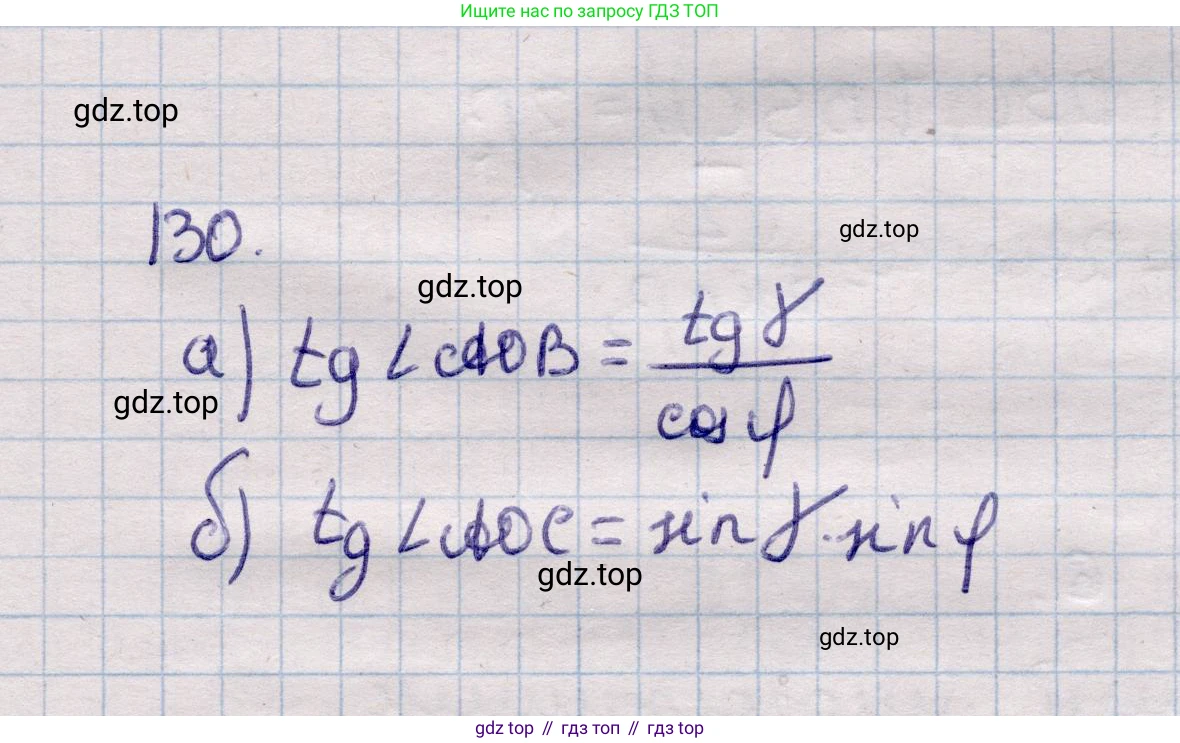 Ищите нас по запросу ГДЗ ТОП
gdz.top
130.
gdz.top
gdz.top
а) tg ∠AOB = tg γ / cos φ
gdz.top
б) tg ∠AOC = sin γ · sin φ
gdz.top
gdz.top
gdz top // гдз топ // гдз top